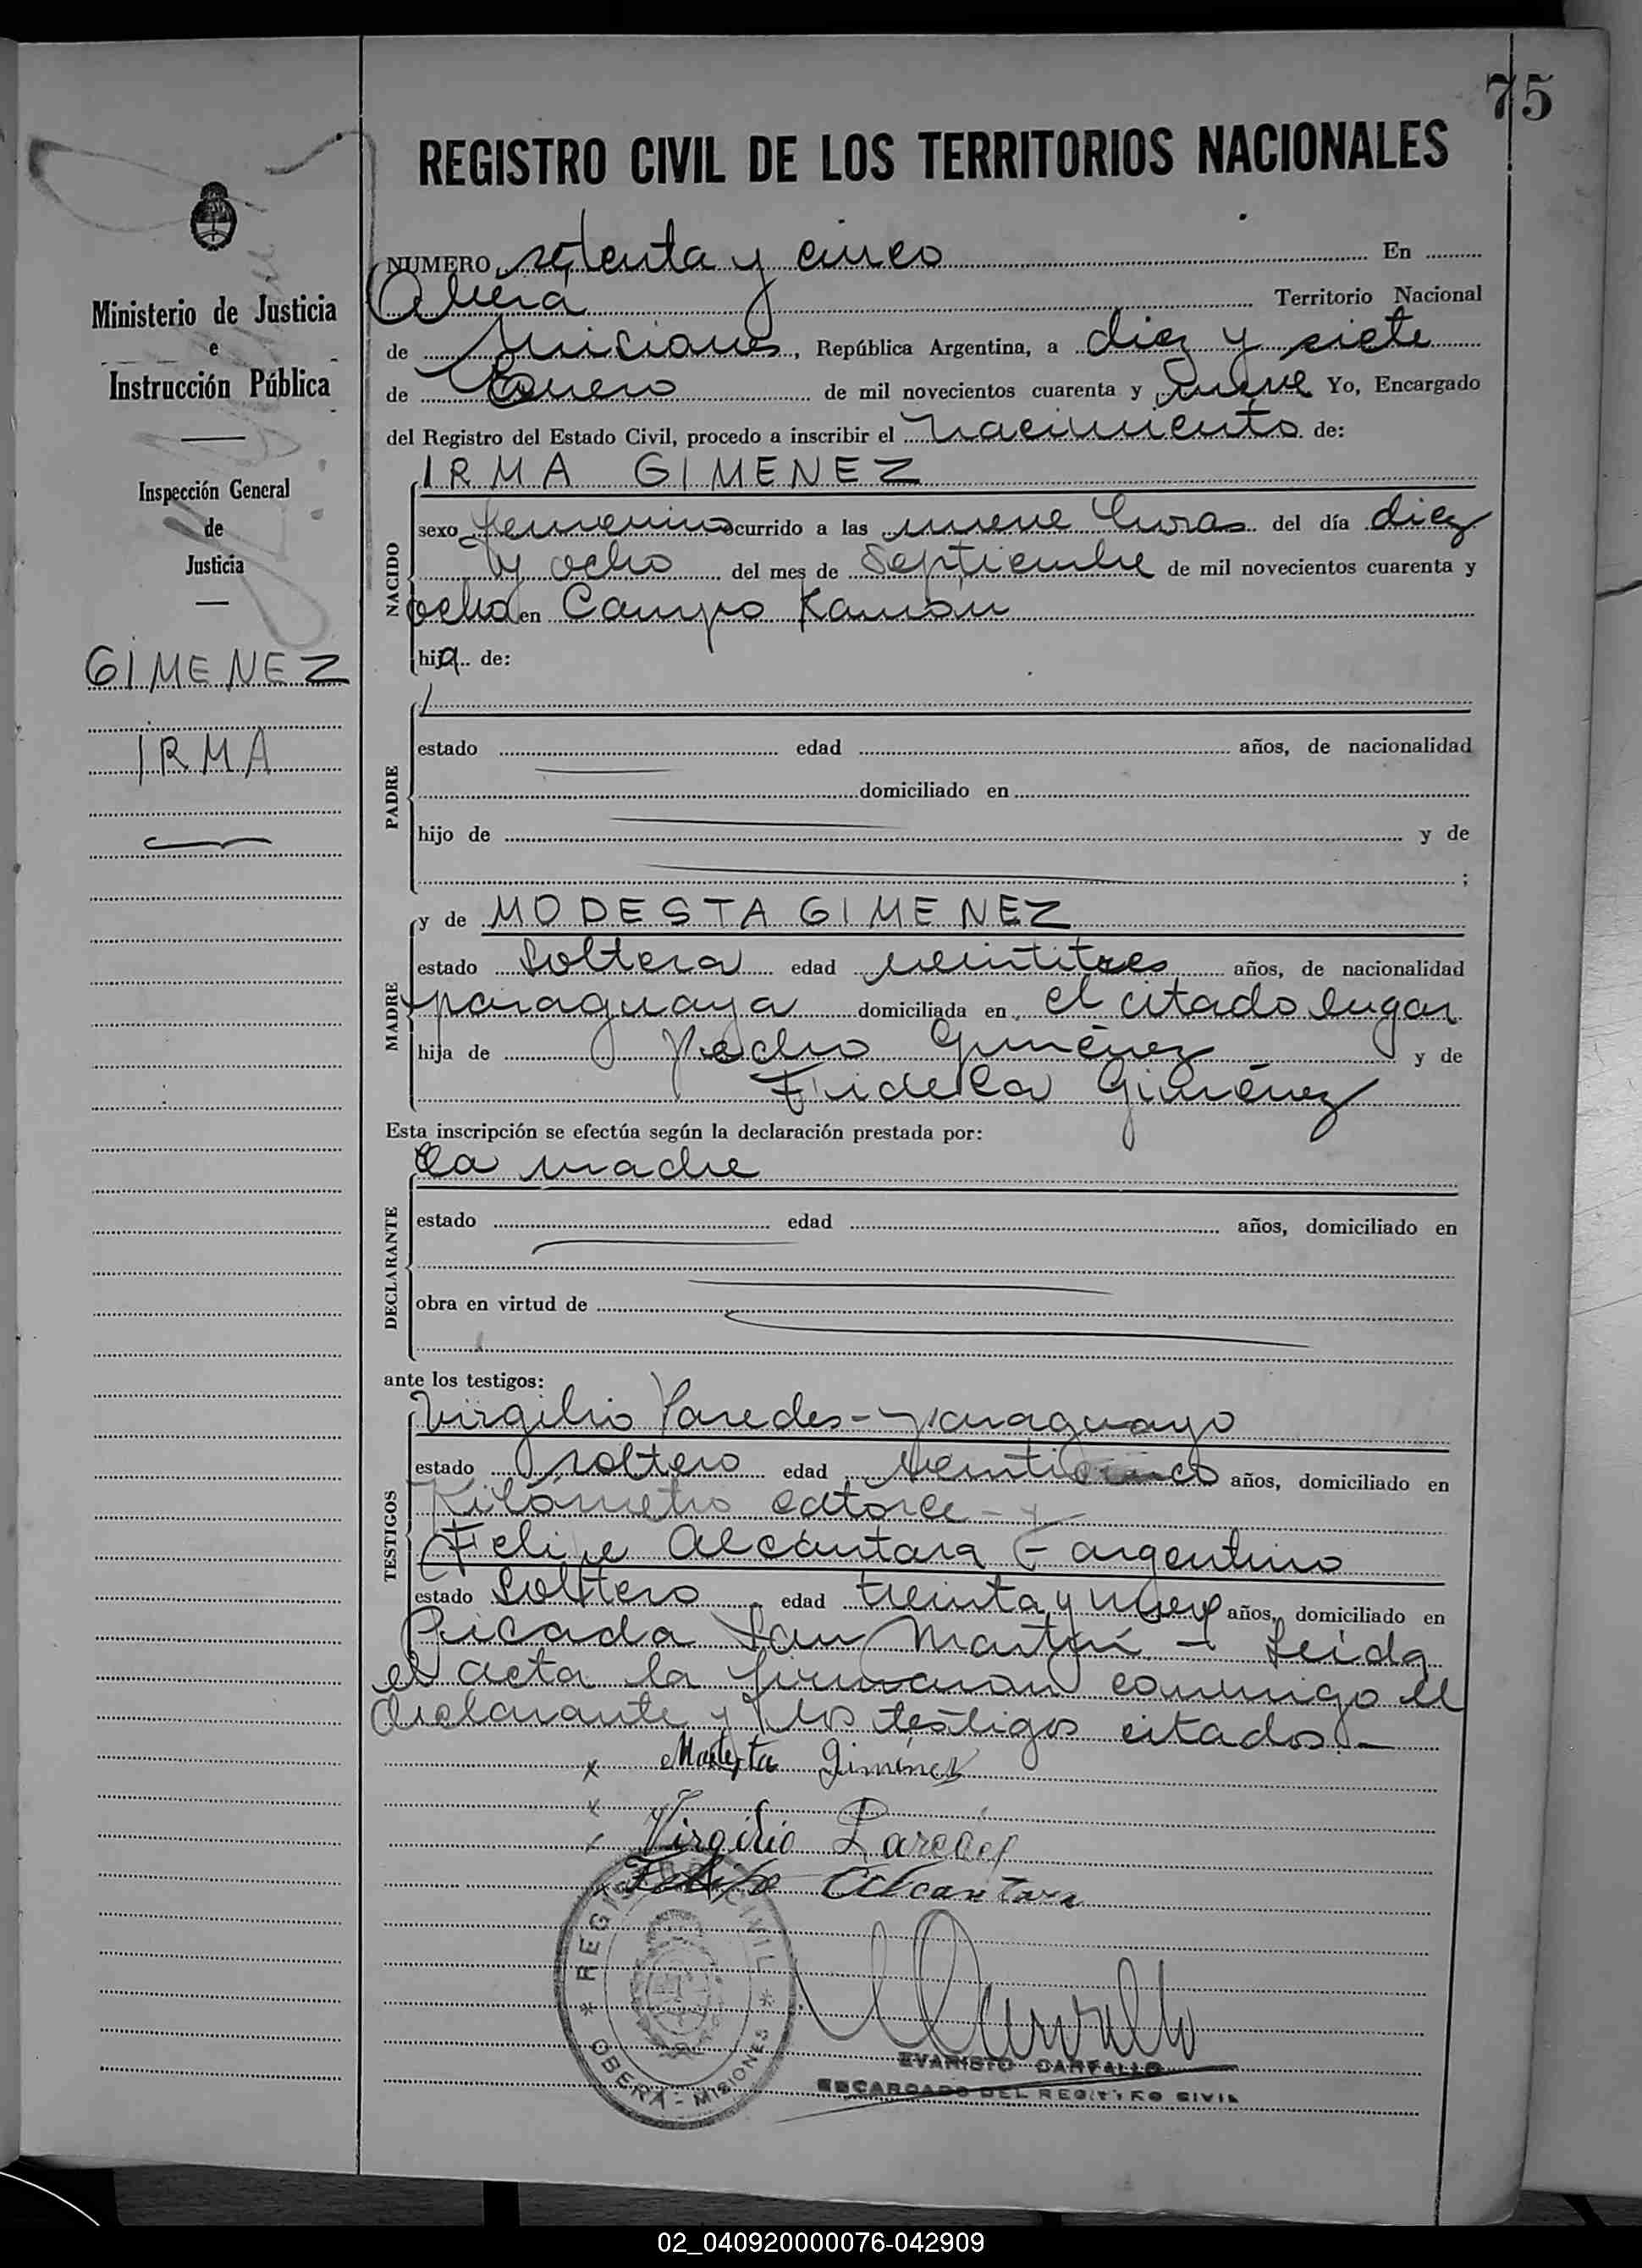 75
REGISTRO CIVIL DE LOS TERRITORIOS NACIONALES
Ministerio de Justicia
e
Instrucción Pública
Inspección General
de
Justicia
GIMENEZ
IRMA
NUMERO setenta y cinco En
Oberá Territorio Nacional
de Misiones, República Argentina, a diez y siete
de Enero de mil novecientos cuarenta y nueve Yo, Encargado
del Registro del Estado Civil, procedo a inscribir el nacimiento de:
NACIDO
IRMA GIMENEZ
sexo femenino ocurrido a las nueve horas del día diez
y ocho del mes de Septiembre de mil novecientos cuarenta y
ocho en Campo Ramón
hija de:
PADRE
estado edad años, de nacionalidad
domiciliado en
hijo de y de
;
MADRE
y de MODESTA GIMENEZ
estado soltera edad veintitres años, de nacionalidad
paraguaya domiciliada en el citado lugar
hija de Pedro Giménez y de
Fidela Giménez
Esta inscripción se efectúa según la declaración prestada por:
la madre
DECLARANTE
estado edad años, domiciliado en
obra en virtud de
ante los testigos:
TESTIGOS
Virgilio Paredes - paraguayo
estado soltero edad veinticinco años, domiciliado en
Kilómetro catorce - y
Felipe Alcántara - argentino
estado soltero edad treinta y nueve años, domiciliado en
Picada San Martín - Leida
el acta la firmaron conmigo el
declarante y los testigos citados.-
x Modesta Giminez
x
Virgilio Paredes
x Felipe Alcantara
REGISTRO CIVIL * OBERÁ - MISIONES *
EVARISTO CARFALLO
ENCARGADO DEL REGISTRO CIVIL
02_040920000076-042909